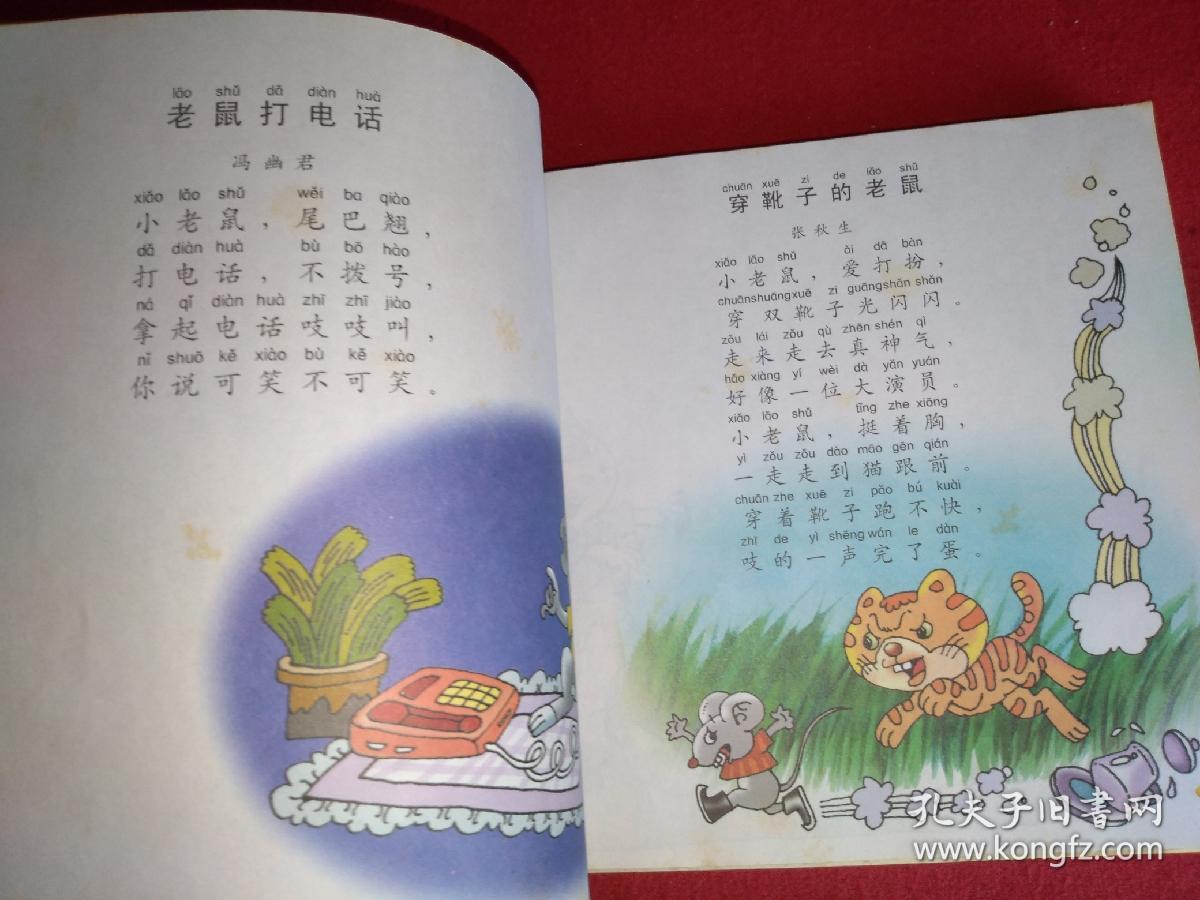 lǎo shǔ dǎ diàn huà
老鼠打电话
冯幽君
xiǎo lǎo shǔ wěi ba qiào
小老鼠，尾巴翘，
dǎ diàn huà bù bō hào
打电话，不拨号，
ná qǐ diàn huà zhī zhī jiào
拿起电话吱吱叫，
nǐ shuō kě xiào bù kě xiào
你说可笑不可笑。
chuān xuē zi de lǎo shǔ
穿靴子的老鼠
张秋生
xiǎo lǎo shǔ ài dǎ bàn
小老鼠，爱打扮，
chuān shuāng xuē zi guāng shǎn shǎn
穿双靴子光闪闪。
zǒu lái zǒu qù zhēn shén qì
走来走去真神气，
hǎo xiàng yí wèi dà yǎn yuán
好像一位大演员。
xiǎo lǎo shǔ tǐng zhe xiōng
小老鼠，挺着胸，
yì zǒu zǒu dào māo gēn qián
一走走到猫跟前。
chuān zhe xuē zi pǎo bú kuài
穿着靴子跑不快，
zhī de yì shēng wán le dàn
吱的一声完了蛋。
孔夫子旧书网
www.kongfz.com